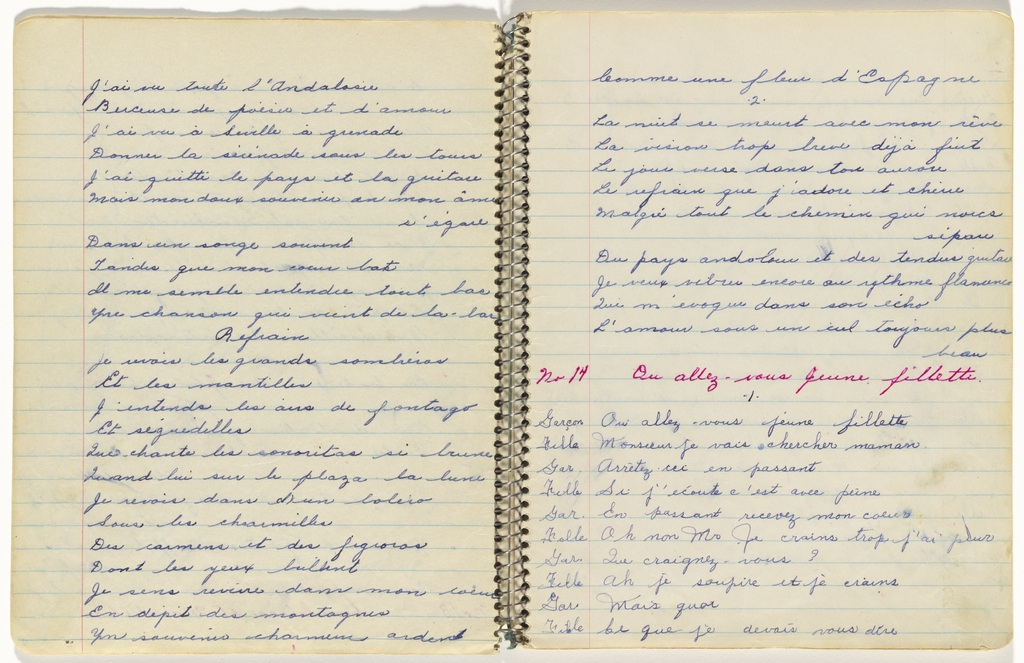 J'ai vu toute l'Andalosie
Berceuse de poésie et d'amour
J'ai vu à Séville à grenade
Donner la sérénade sous les tours
J'ai quitté le pays et la guitare
Mais mon doux souvenir en mon âme
s'égare
Dans un songe souvent
Tandis que mon coeur bat
Il me semble entendre tout bas
Une chanson qui vient de la-bas
Refrain
Je revois les grands sombréros
Et les mantilles
J'entends les airs de fontago
Et seguédilles
Que chante les sonoritas si brune
Quand lui sur le plaza la lune
Je revois dans d'un boléro
Sous les charmilles
Des carmens et des figoros
Dont les yeux brillent
Je sens revivre dans mon coeur
En dépit des montagnes
Un souvenir charmeur ardent
Comme une fleur d'Espagne
.2.
La nuit se meurt avec mon rêve
La vision trop breve déjà fuit
Le jour verse dans ton aurore
Le refrain que j'adore et chérie
Malgré tout le chemin qui nous
sépare
Du pays andolour et des tendres guitare
Je veux vibrer encore au rythme flamenco
Qui m'évoque dans son écho
L'amour sous un ciel toujours plus
beau
No 14 Ou allez-vous Jeune fillette.
.1.
Garçon Ou allez-vous jeune fillette
Fille Monsieur Je vais chercher maman
Gar. Arrêtez ici en passant
Fille Si j'écoute c'est avec peine
Gar. En passant recevez mon coeur
Fille Oh non Mr Je crains trop j'ai peur
Gar. Que craignez-vous ?
Fille Ah je soupire et je crains
Gar Mais quoi
Fille Ce que je devais vous dire